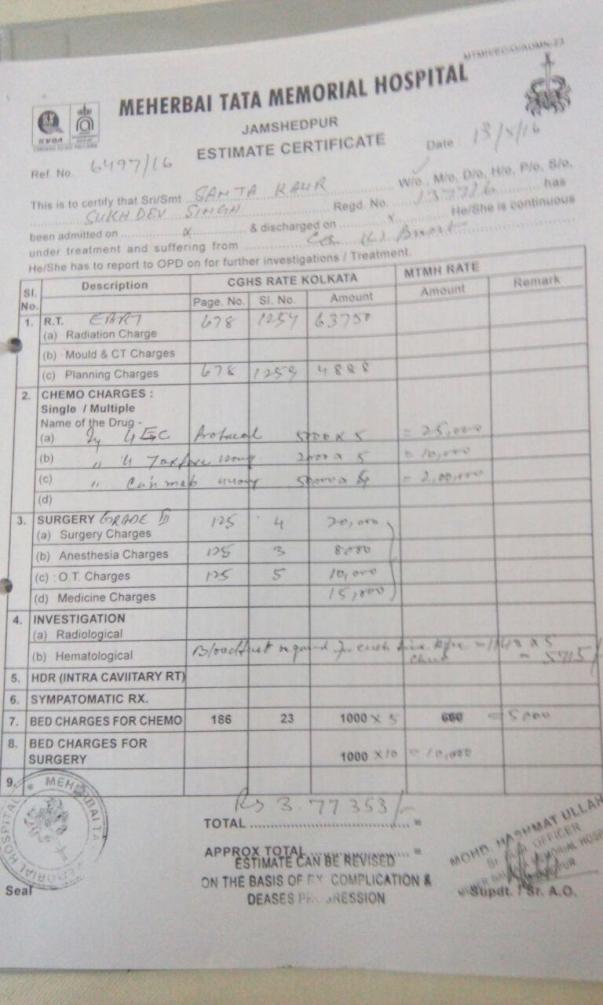 MEHERBAI TATA MEMORIAL HOSPITAL
JAMSHEDPUR
ESTIMATE CERTIFICATE
Ref. No. 6497/16 Date 13/X/16
This is to certify that Sri/Smt SAMTA KAUR W/o, M/o, D/o, H/o, P/o, S/o,
SUKHDEV SINGH Regd. No. has
been admitted on x & discharged on x He/She is continuous
under treatment and suffering from Ca
He/She has to report to OPD on for further investigations / Treatment.
Sl. No. Description CGHS RATE KOLKATA MTMH RATE Remark
Page. No. Sl. No. Amount Amount
1. R.T.
(a) Radiation Charge 678 1254 63750
(b) Mould & CT Charges
(c) Planning Charges 678 1259 4888
2. CHEMO CHARGES :
Single / Multiple
Name of the Drug -
(a) Protocol 5000 x 5 = 25,000
(b) 2000 x 5 = 10,000
(c) = 2,00,000
(d)
3. SURGERY GRADE
(a) Surgery Charges 125 4 20,000
(b) Anesthesia Charges 125 3 8000
(c) O.T. Charges 125 5 10,000
(d) Medicine Charges 15,000
4. INVESTIGATION
(a) Radiological
(b) Hematological Blood test required for each time before x 5
chemo = 5715/
5. HDR (INTRA CAVIITARY RT)
6. SYMPATOMATIC RX.
7. BED CHARGES FOR CHEMO 186 23 1000 x 5 660 = 5000
8. BED CHARGES FOR
SURGERY 1000 x 10 = 10,000
9.
Rs 3.77353/-
TOTAL =
APPROX TOTAL =
ESTIMATE CAN BE REVISED
ON THE BASIS OF COMPLICATION &
DEASES PROGRESSION
MOHD. HASHMAT ULLAH
OFFICER
Seal Supdt. / Sr. A.O.